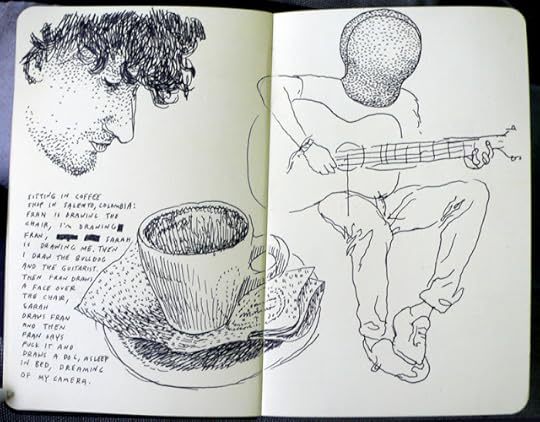 SITTING IN COFFEE
SHOP IN SALENTO, COLOMBIA:
FRAN IS DRAWING THE
CHAIR, I'M DRAWING
FRAN, SARAH
IS DRAWING ME. THEN
I DRAW THE BULLDOG
AND THE GUITARIST.
THEN FRAN DRAWS
A FACE OVER
THE CHAIR,
SARAH
DRAWS FRAN
AND THEN
FRAN SAYS
FUCK IT AND
DRAWS A DOG, ASLEEP
IN BED, DREAMING
OF MY CAMERA.